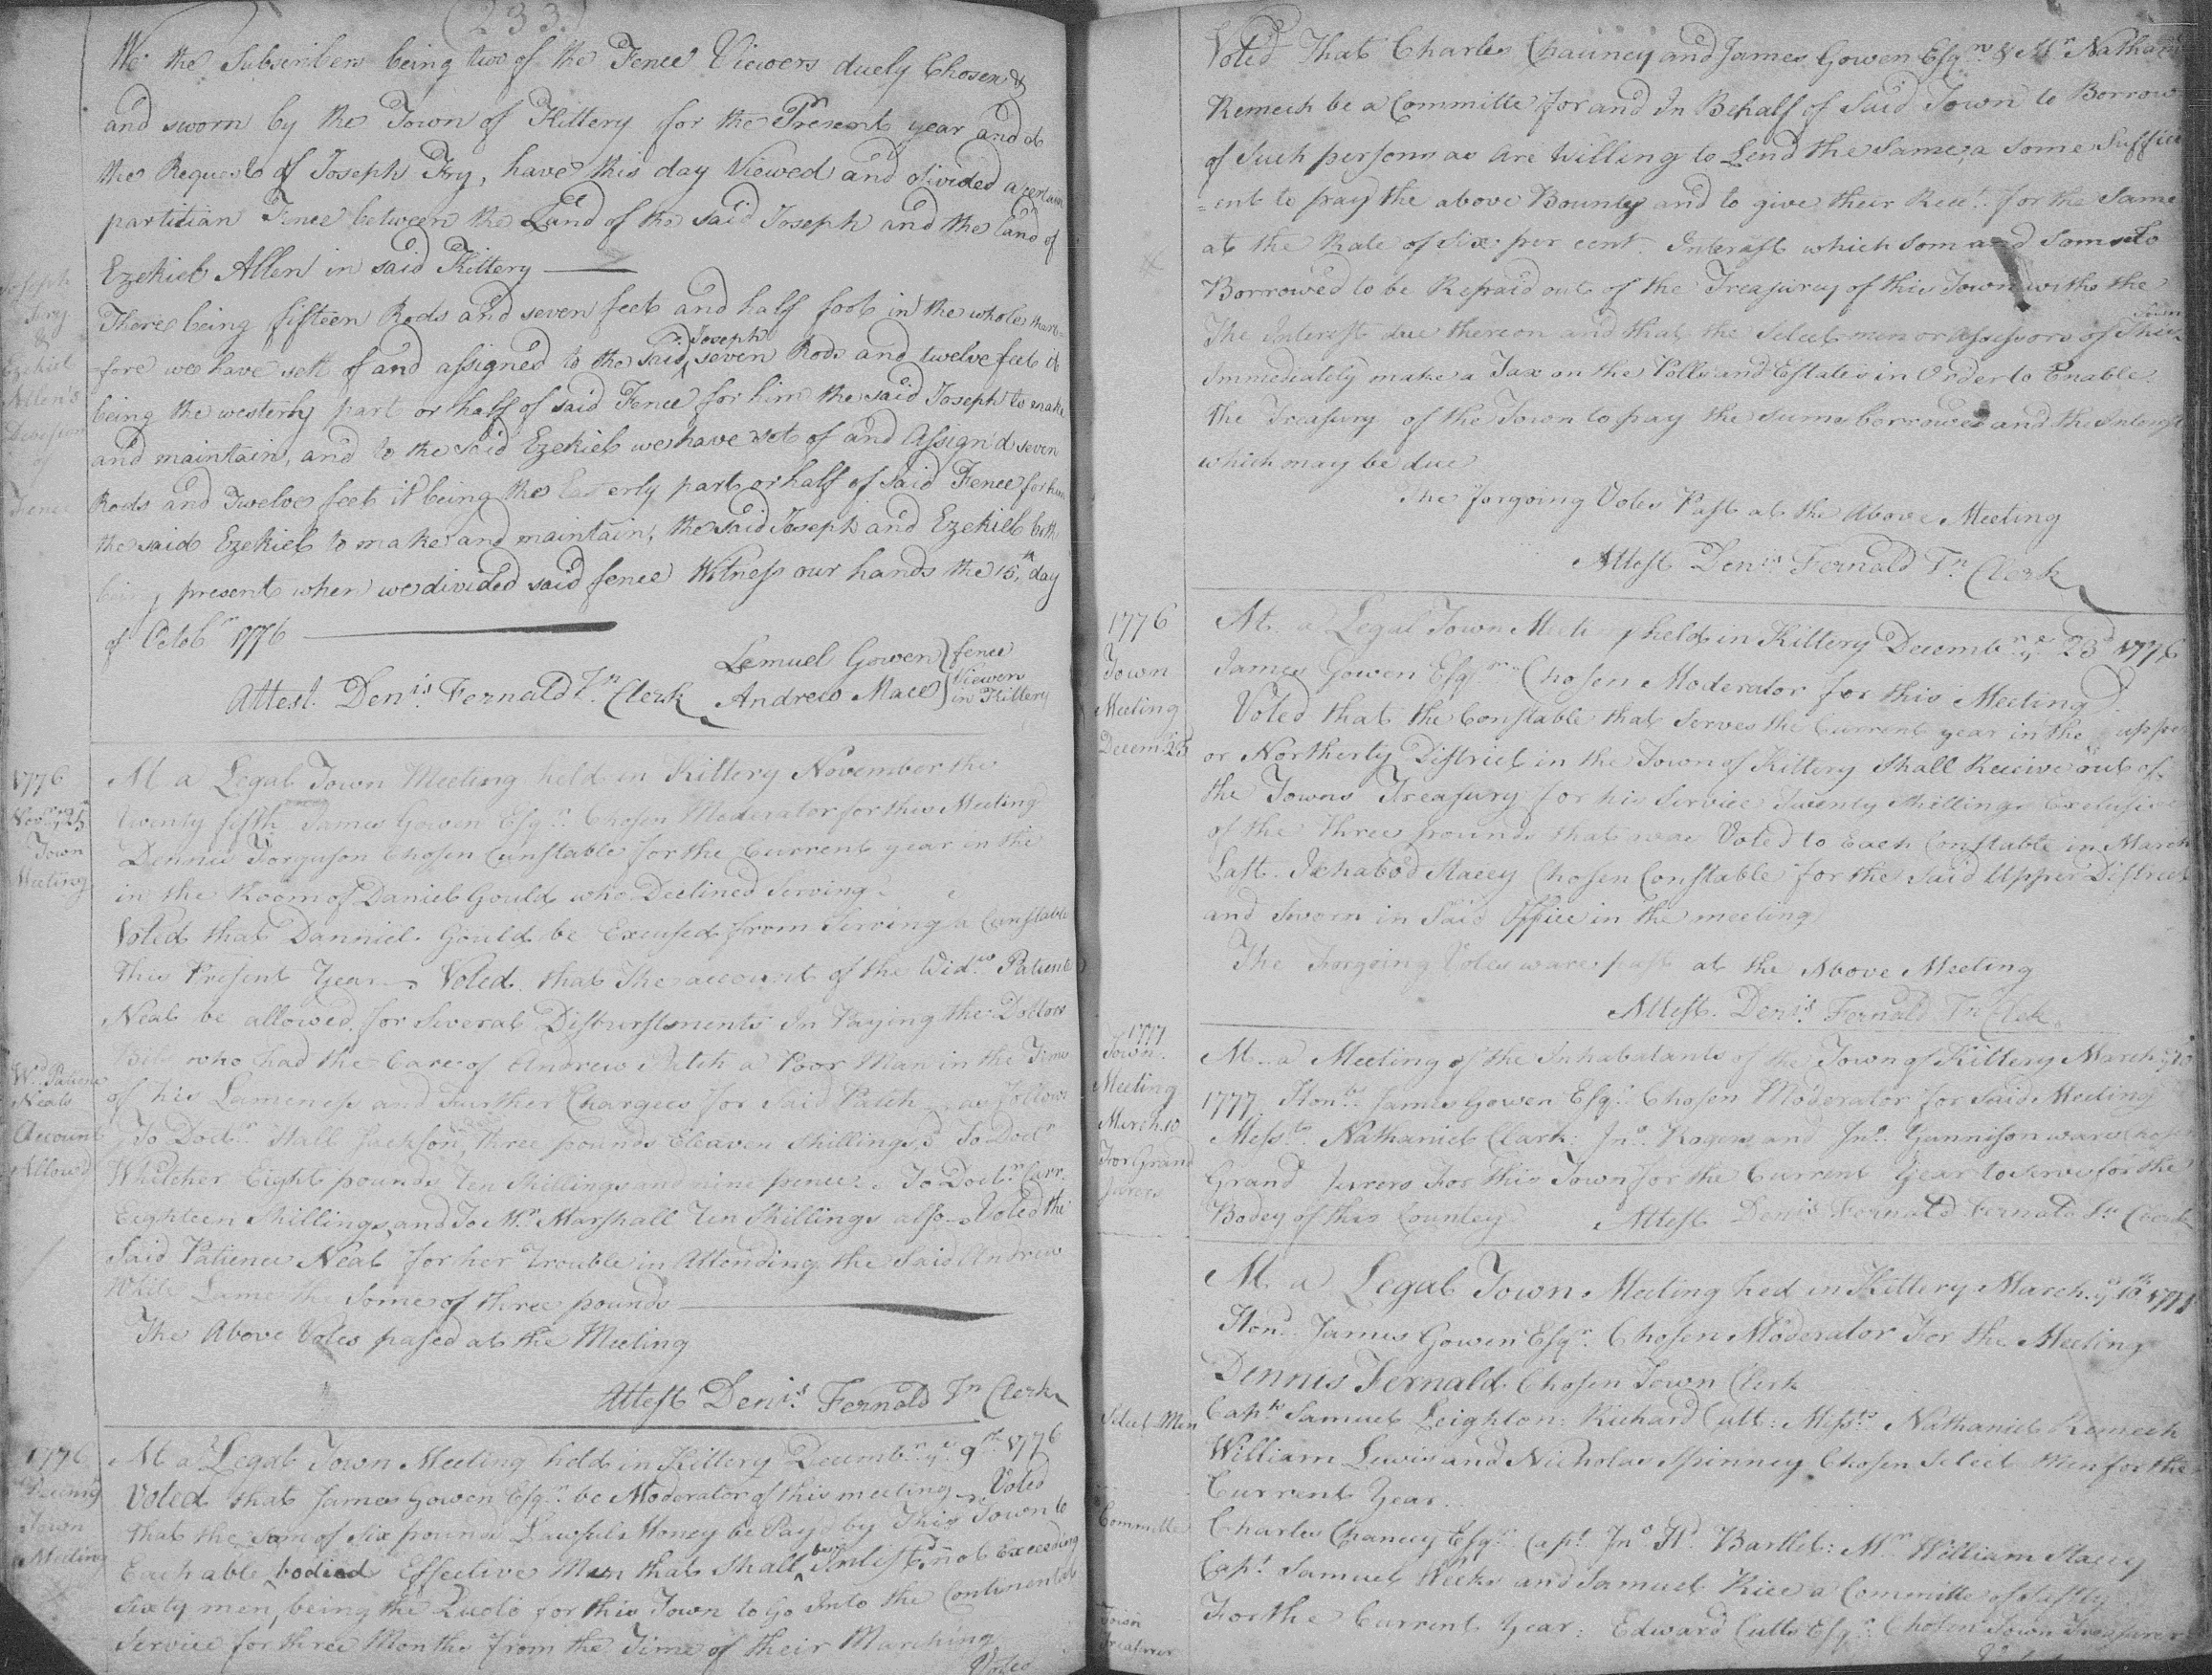 (233)
We the Subscribers being two of the Fence Viewers duely Chosen &
and sworn by the Town of Kittery for the Present year and at
the Request of Joseph Fry, have this day Viewed and divided a certain
partitian Fence between the Land of the said Joseph and the land of
Ezekiel Allen in said Kittery
Joseph
Fry
&
Ezekiel
Allen's
Division
of
Fence
There being fifteen Rods and seven feet and half foot in the whole there-
fore we have sett of and assigned to the said Joseph seven Rods and twelve feet it
being the westerly part or half of said Fence for him the said Joseph to make
and maintain, and to the said Ezekiel we have set of and Assign'd seven
Rods and Twelve feet it being the Easterly part or half of said Fence for him
the said Ezekiel to make and maintain, the said Joseph and Ezekiel both
being present when we divided said fence Witness our hands the 15th day
of Octobr 1776
Lemuel Gowen } fence
Andrew Mace } Viewers in Kittery
Attest. Denis Fernald Tn. Clerk
1776
Novr ye 25
Town
Meeting
At a Legal Town Meeting held in Kittery November the
twenty fifth James Gowen Esqr. Chosen Moderator for this Meeting
Dennis Forguson Chosen Cunstable for the Current year in the
in the Room of Daniel Gould who Declined Serving
Voted that Danniel Gould be Excused from Serving a Cunstable
this Present Year. Voted that the account of the Widw Patience
Neal be allowed for Several Disburstments In Paying the Doctors
Bill who had the Care of Andrew Patch a Poor Man in the Time
of his Lameness and Further Charges for Said Patch as follows
Wd. Patience
Neals
Account
Allowd
To Doctr Hall Jackson three pounds Eleaven Shillings To Doctr
Whitcher Eight pounds Ten Shillings and nine pence. To Doctr Carr
Eighteen Shillings and To Mr Marshall Ten Shillings also Voted the
Said Patience Neal for her Trouble in Attending the Said Andrew
While Lame the Some of three pounds
The Above Votes pased at the Meeting
Attest Denis. Fernald Tn Clerk
1776
Decemr 9
Town
Meeting
At a Legal Town Meeting held in Kittery Decembr. ye 9th 1776
Voted that James Gowen Esqr. be Moderator of this meeting Voted
that the Sum of Six pounds Lawful Money be Pay'd by This Town to
Each able bodied Effective Man that Shall Inlist not Exceeding
Sixty men, being the Quoto for this Town to Go Into the Continental
Service for three Months from the Time of their Marching
Voted
Voted That Charles Chauncy and James Gowen Esqrs & Mr Nathaniel
Remeck be a Committe for and In Behalf of Said Town to Borrow
of Such persons as Are Willing to Lend the Same, a Some Suffici
=ent to pay the above Bounty and to give their Rect. for the Same
at the Rate of Six per cent. Interest which som and Soms so
Borrowed to be Repaid out of the Treasurey of this Town with the
The Interest due thereon and that the Select men or Assessors of This Town
Immediately make a Tax on the Polls and Estates in Order to Enable
the Treasury of the Town to pay the sums borrowed and the Interest
which may be due
The forgoing Votes Past at the Above Meeting
Attest Denis. Fernald Tn. Clerk
1776
Town
Meeting
Decemr 23
At a Legal Town Meeting held in Kittery Decembr ye 23d 1776
James Gowen Esqr Chosen Moderator for this Meeting
Voted that the Constable that Serves the Current year in the upper
or Northerly District in the Town of Kittery Shall Receive out of
the Towns Treasury for his Service Twenty Shillings Exclusive
of the three pounds that was Voted to Each Constable in March
Last. Ichabod Stacey Chosen Constable for the Said Upper District
and Sworn in Said Office in the meeting
The Forgoing Votes ware past at the Above Meeting
Attest. Denis. Fernald Tn Clek
1777
Town
Meeting
March 10
For Grand
Jurors
At a Meeting of the Inhabatants of the Town of Kittery March ye 10
1777 Honbl James Gowen Esqr. Chosen Moderator for Said Meeting
Messrs. Nathaniel Clark: Jno. Rogers and Jno. Gunnison ware Chosen
Grand Jurors For this Town for the Current Year to serve for the
Bodey of this Countey Attest Denis Fernald Fernald Tn Clerk
At a Legal Town Meeting hed in Kittery March. ye 18th 1777
Hond. James Gowen Esqr. Chosen Moderator For the Meeting
Dennis Fernald Chosen Town Clerk
Select Men
Capt. Samuel Leighton: Richard Cutt: Messrs Nathaniel Remeck
William Lewis and Nicholas Spinney Chosen Select Men for the
Current Year.
Committe
Charles Chancy Esqr Capt Jno Hd. Bartlet: Mr William Stacey
Capt Samuel Weeks and Samuel Rice a Committe of Saftey
Town
Treasurer
For the Current Year: Edward Cutts Esqr. Chosen Town Treasurer